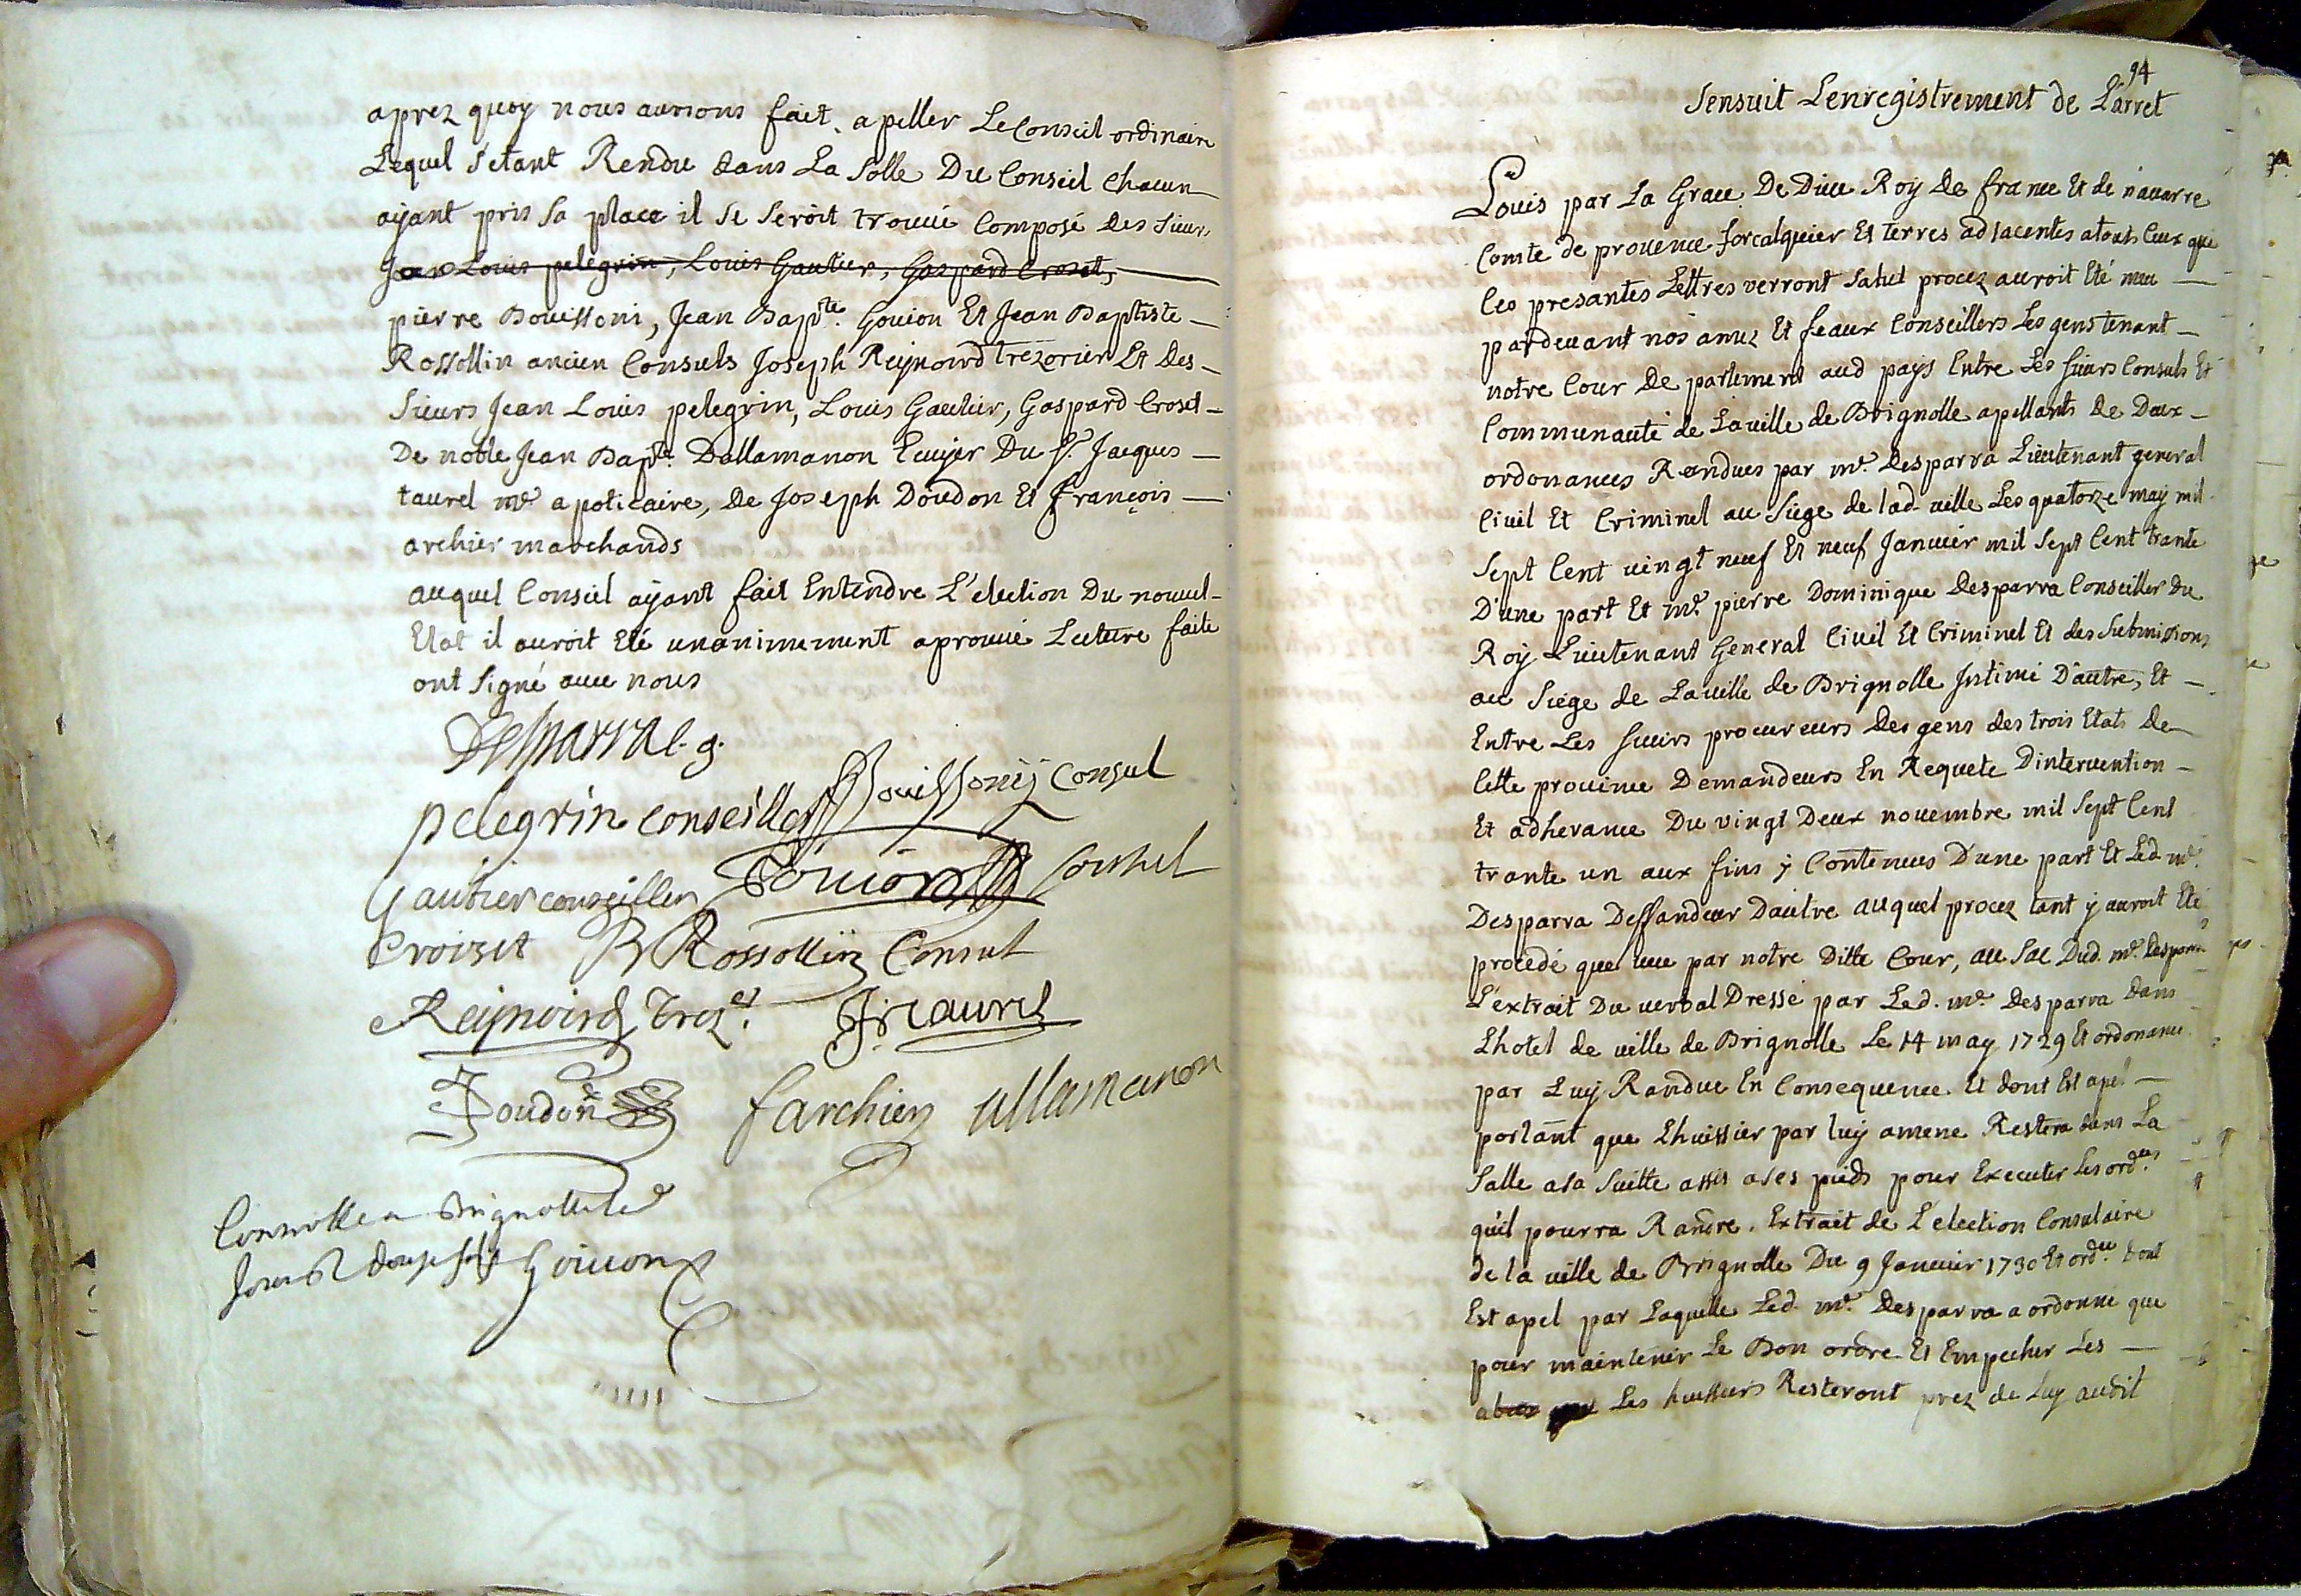 aprez quoy nous aurions fait apeller Le Conseil ordinaire
Lequel s'etant Rendu dans La Salle Du Conseil Chacun
ayant pris sa place il se seroit trouvé Composé des sieurs
Jean Louis pelegrin, Louis Gautier, Gaspard Croset,
pierre Bouissoni, Jean Bapte. Gouion Et Jean Baptiste
Rossollin ancien Consuls Joseph Reynoird trezorier Et des
sieurs Jean Louis pelegrin, Louis Gautier, Gaspard Croset
De noble Jean Bapte. Dallamanon Ecuyer Du sr. Jacques
taurel me. apoticaire, de Joseph Doudon Et François
archier marchands
auquel Conseil ayant fait Entendre L'election Du nouvel
Etat il auroit Eté unanimement aprouvé Lecture faite
ont signé avec nous
Desparra l. g.
pelegrin conseiller Bouissony Consul
Gautier conseiller Gouion Consul
Croizet B Rossollin Consul
Reynoird Trezer. J. Taurel
Doudon farchier allamanon
Controlle a Brignolle le
Gouion
94
Sensuit Lenregistrement de L'arret
Louis par La Grace De Dieu Roy de france Et de navarre
Comte de provence forcalquier Et terres adjacentes a tous Ceux qui
Ces presantes Lettres verront salut procez auroit Eté meu
pardevant nos amez Et feaux Conseillers Les gens tenant
notre Cour de parlement aud pays Entre Les sieurs Consuls Et
Communauté de La ville de Brignolle apellants de Deux
ordonances Rendues par me. desparra Lieutenant general
Civil Et Criminel au siege de lad. ville Les quatorze may mil
sept Cent vingt neuf Et neuf Janvier mil sept Cent trante
D'une part Et me. pierre Dominique desparra Conseiller du
Roy Lieutenant General Civil Et Criminel Et des submissions
au siege de La ville de Brignolle Intimé D'autre, Et
Entre Les sieurs procureurs des gens des trois Etats de
Cette province Demandeurs En Requete D'intervention
Et adherance Du vingt Deux novembre mil sept Cent
trante un aux fins y Contenues D'une part Et Led me.
Desparra Deffandeur Dautre auquel procez tant y auroit Eté
procedé que veu par notre Ditte Cour, au sac Dud. me. desparra
L'extrait Du verbal Dressé par Led. me. desparra dans
Lhotel de ville de Brignolle Le 14 may 1729 Et ordonance
par Luy Randue En Consequence Et dont Est apel
portant que Lhuissier par luy amene Restera dans La
salle a sa suitte assis a ses pieds pour Executer les ordces.
qu'il pourra Randre. Extrait de L'election Consulaire
de la ville de Brignolle Du 9 Janvier 1730 Et ordce. dont
Est apel par Laquelle Led. me. desparra a ordonné que
pour maintenir Le Bon ordre Et Empecher Les
abus Les huissiers Resteront prez de Luy audit